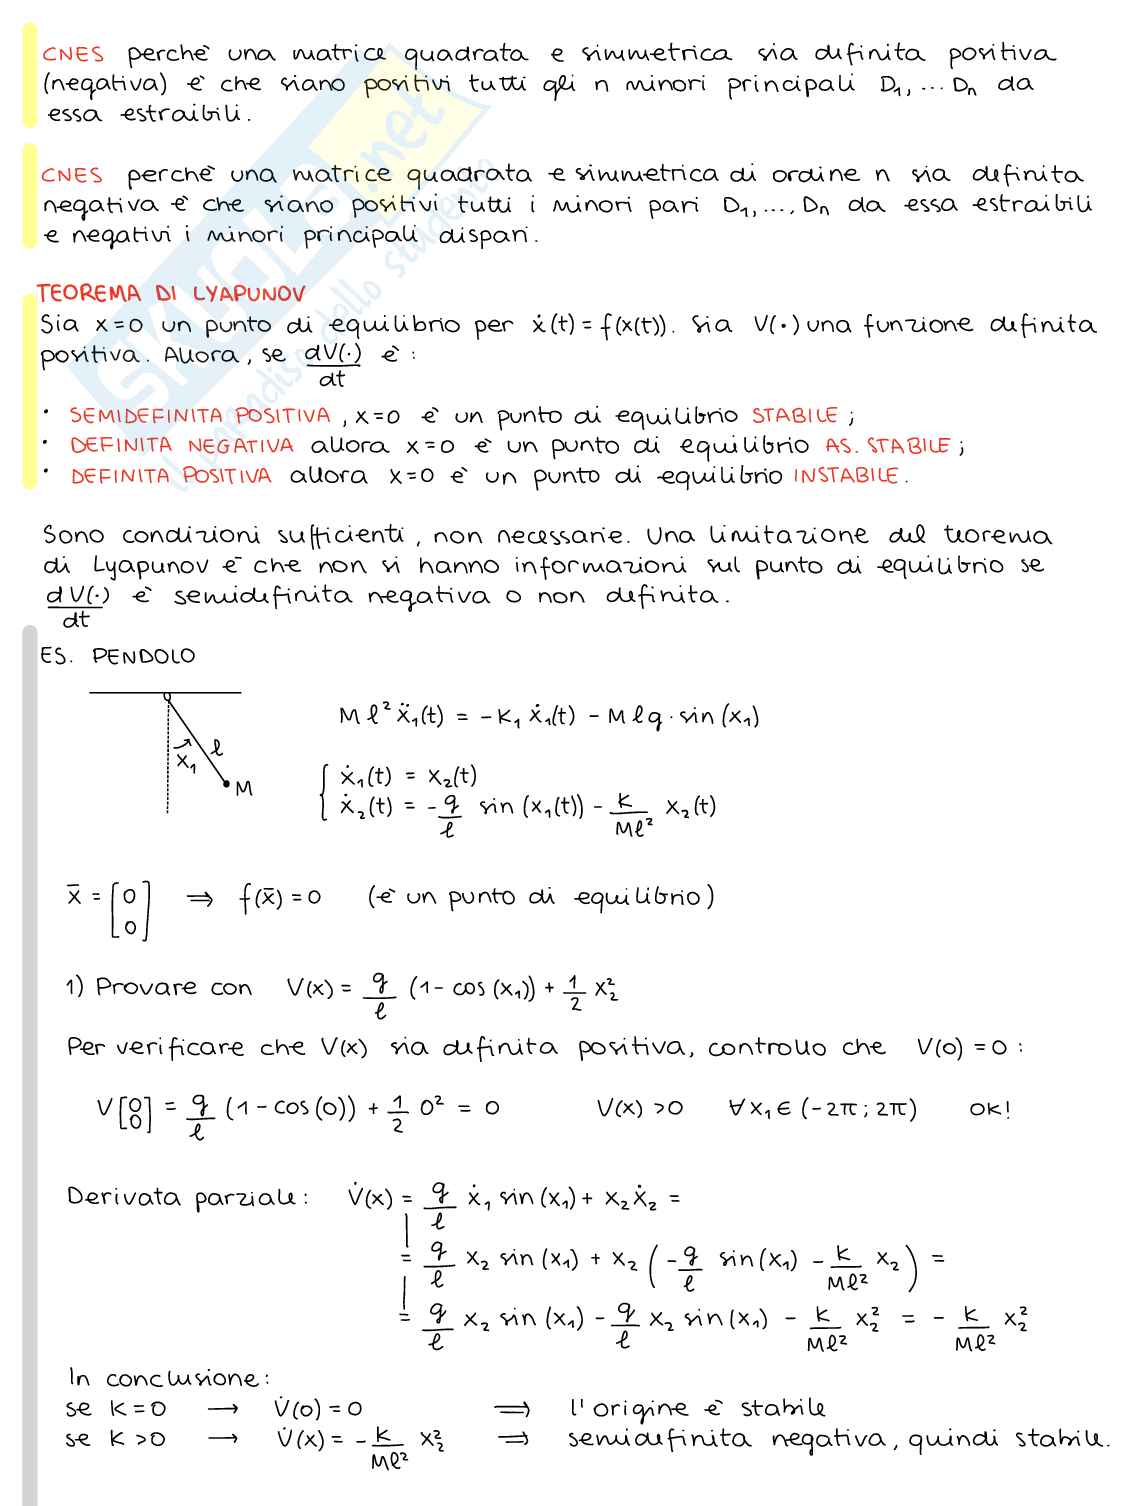 CNES perchè una matrice quadrata e simmetrica sia definita positiva
(negativa) è che siano positivi tutti gli n minori principali D₁, ... Dₙ da
essa estraibili.
CNES perchè una matrice quadrata e simmetrica di ordine n sia definita
negativa è che siano positivi tutti i minori pari D₁, ..., Dₙ da essa estraibili
e negativi i minori principali dispari.
TEOREMA DI LYAPUNOV
Sia x=0 un punto di equilibrio per ẋ(t) = f(x(t)). Sia V(·) una funzione definita
positiva. Allora, se dV(·)/dt è :
· SEMIDEFINITA POSITIVA, x=0 è un punto di equilibrio STABILE ;
· DEFINITA NEGATIVA allora x=0 è un punto di equilibrio AS. STABILE ;
· DEFINITA POSITIVA allora x=0 è un punto di equilibrio INSTABILE.
Sono condizioni sufficienti, non necessarie. Una limitazione del teorema
di Lyapunov è che non si hanno informazioni sul punto di equilibrio se
dV(·)/dt è semidefinita negativa o non definita.
ES. PENDOLO
x₁ l M
Ml²ẍ₁(t) = -K₁ẋ₁(t) - Mlg · sin(x₁)
{ ẋ₁(t) = x₂(t)
ẋ₂(t) = -g/l sin(x₁(t)) - k/Ml² x₂(t)
x̄ = [0 0] ⇒ f(x̄) = 0 (è un punto di equilibrio)
1) Provare con V(x) = g/l (1 - cos(x₁)) + 1/2 x₂²
Per verificare che V(x) sia definita positiva, controllo che V(0) = 0 :
V[0 0] = g/l (1 - cos(0)) + 1/2 0² = 0 V(x) >0 ∀x₁∈(-2π; 2π) OK!
Derivata parziale: V̇(x) = g/l ẋ₁ sin(x₁) + x₂ẋ₂ =
= g/l x₂ sin(x₁) + x₂ ( -g/l sin(x₁) - k/Ml² x₂ ) =
= g/l x₂ sin(x₁) - g/l x₂ sin(x₁) - k/Ml² x₂² = - k/Ml² x₂²
In conclusione:
se K=0 → V̇(0) = 0 ⇒ l'origine è stabile
se K>0 → V̇(x) = - k/Ml² x₂² ⇒ semidefinita negativa, quindi stabile.
SKUOLA.net
il paradiso dello studente